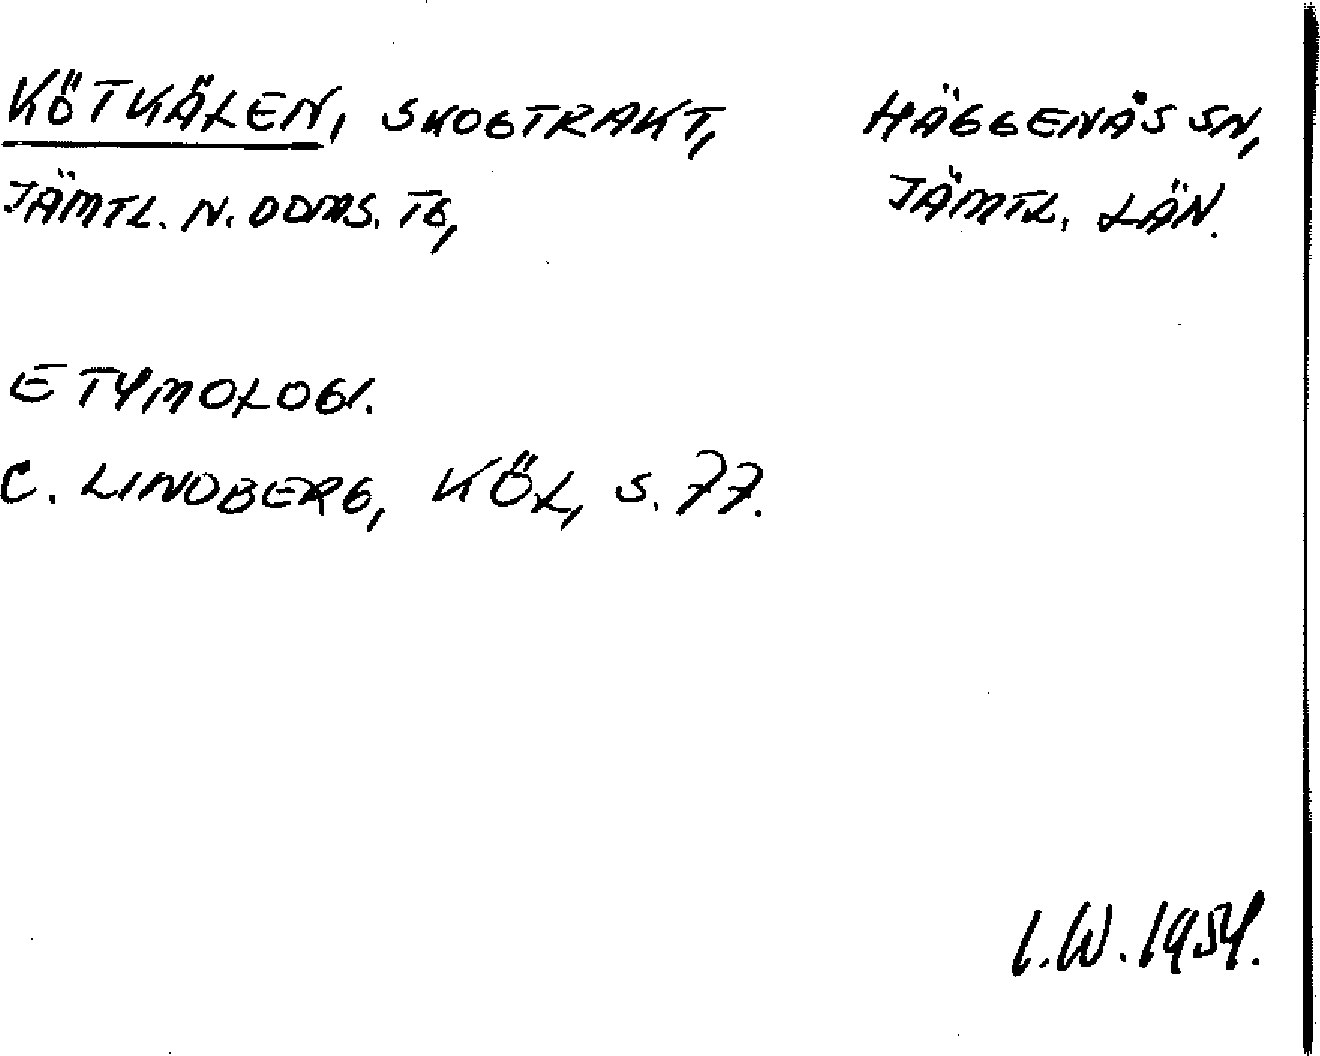 KÖTKÄLEN, SKOGTRAKT, HÄGGENÅS SN,
JÄMTL. N. DOMS. TG, JÄMTL. LÄN.
ETYMOLOGI.
C. LINDBERG, KÖL, S. 77.
I.W. 1954.